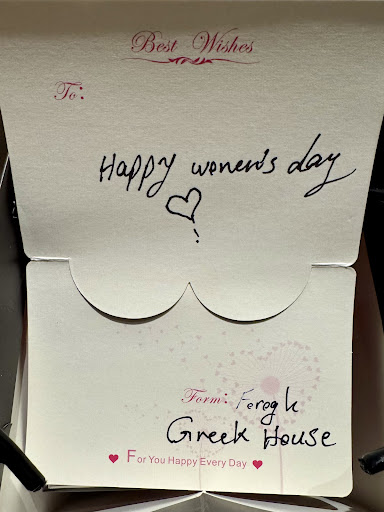 Best Wishes
To:
Happy women's day
Form: Ferogk
Greek House
For You Happy Every Day